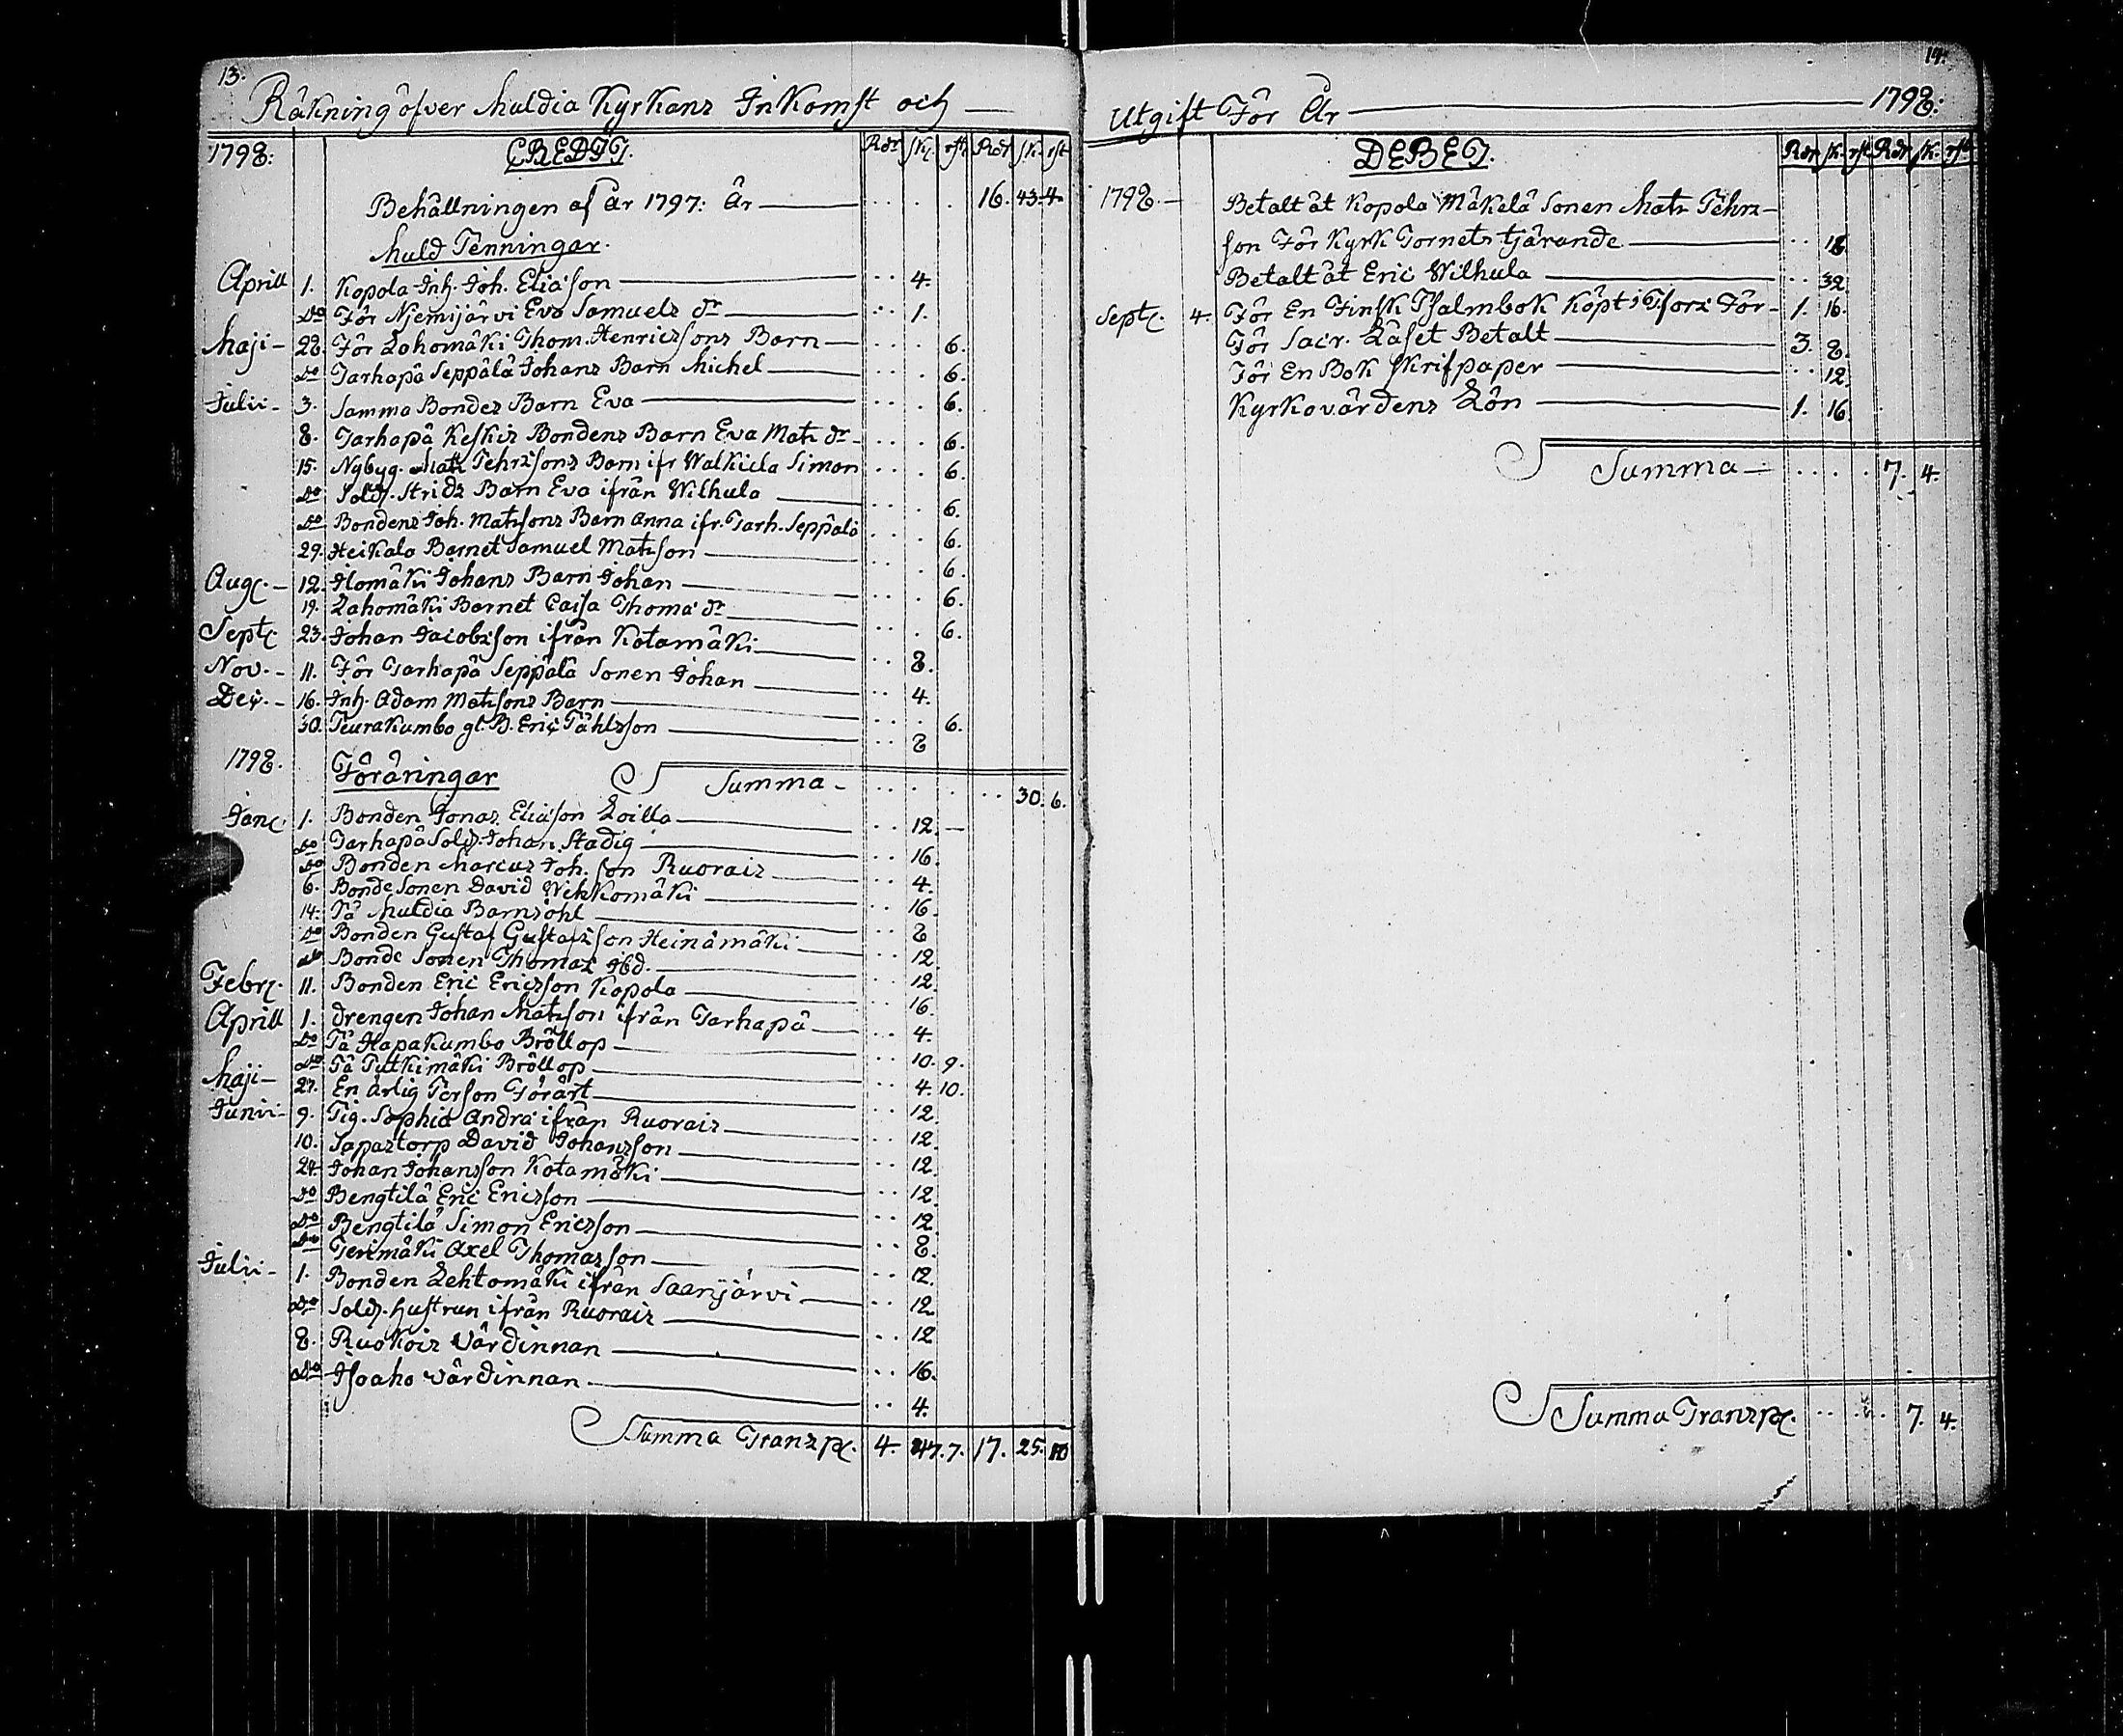 13.
Räkning öfver Muldia Kyrkans Inkomst och
1798: CREDIT. Rdr sk. rst. Rdr sk. rst
Behållningen af år 1797: är 16. 43. 4.
Muld Penningar.
Aprill 1. Kopola Inh. Joh. Eliasson 4.
Do För Njemijärvi Eva Samuels dr 1.
Maji 28. För Lahomäki Thom. Henricssons Barn 6.
Do Tarhapä Seppälä Johans Barn Michel 6.
Julii 3. Samma Bondes Barn Eva 6.
8. Tarhapä Keskis Bondens Barn Eva Mats dr 6.
15. Nybyg. Mats Pehrssons Barn ifr Walkiela Simon 6.
Do Sold. Strids Barn Eva ifrån Wilhula 6.
Do Bondens Joh. Matssons Barn Anna ifr. Tarh. Seppälä 6.
29. Heikala Barnet Samuel Matsson 6.
Aug. 12. Homäki Johans Barn Johan 6.
19. Lahomäki Barnet Caisa Thoma dr 6.
Sept. 23. Johan Jacobsson ifrån Kotamäki 8.
Nov. 11. För Tarhapä Seppälä Sonen Johan 4.
Dec. 16. Inh. Adam Matssons Barn 6.
30. Peurakumbo gl. B. Eric Påhlsson 8
1798. Föräringar Summa 30. 6.
Jan. 1. Bonden Jonas Eliasson Loilla 12.
Do Tarhapä Sold. Johan Stadig 16.
Do Bonden Marcus Joh. son Ruorais 4.
6. Bonde Sonen David Wehkomäki 16.
14. På Muldia Barnsöhl 8
Do Bonden Gustaf Gustafsson Heinämäki 12
Do Bonde Sonen Thomas Ibd. 12.
Febr. 11. Bonden Eric Ericsson Kopola 16.
Aprill 1. Drengen Johan Matsson ifrån Tarhapä 4.
Do På Hapakumbo Bröllop 10. 9.
Do På Putkimäki Bröllop 4. 10.
Maji 27. En ärlig Person Förärt 12
Junii 9. Pig. Sophia Andra ifrån Ruorais 12
10. Sapastorp David Johansson 12
24. Johan Johansson Kotamäki 12.
Do Bengtilä Eric Ericsson 12
Do Bengtilä Simon Ericsson 8.
Do Perimäki Axel Thomasson 12.
Julii 1. Bonden Lehtomäki ifrån Saarijärvi 12
Do Sold. hustrun ifrån Ruorais 12
8. Ruokois Värdinnan 16.
Do Isoaho värdinnan 4.
Summa Transp. 4. 47. 7. 17. 25. 10
14.
Utgift För År 1798:
DEBET. Rdr sk. rst Rdr sk. rst
1798. Betalt åt Kopola Mäkelä Sonen Mats Pehrs-
son För Kyrk Tornets tjärande 16
Betalt åt Eric Wilhula 32
Sept. 4. För En Finsk Psalmbok Köpt i Thors För 1. 16.
För Sacr. Låset Betalt 3. 8.
För En Bok skrifpaper 12.
Kyrkovärdens Lön 1. 16
Summa 7. 4.
Summa Transp. 7. 4.